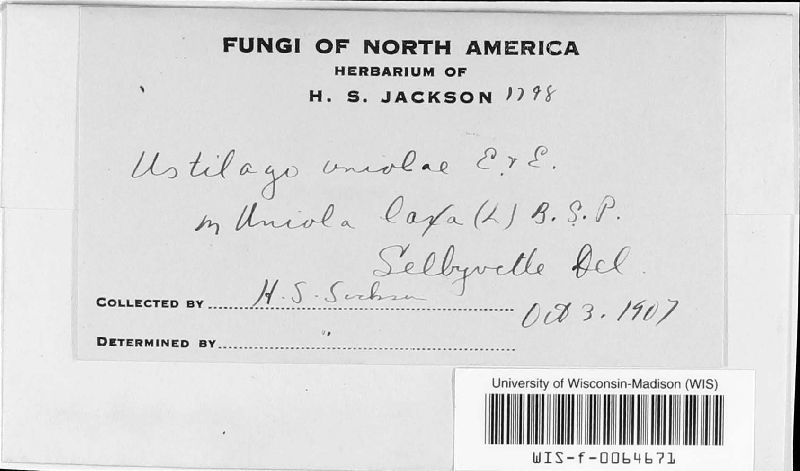 FUNGI OF NORTH AMERICA
HERBARIUM OF
H. S. JACKSON 1798
Ustilago uniolae E. & E.
on Uniola laxa (L) B. S. P.
Selbyville Del.
COLLECTED BY H. S. Jackson
Oct 3. 1907
DETERMINED BY "
University of Wisconsin-Madison (WIS)
WIS-f-0064671